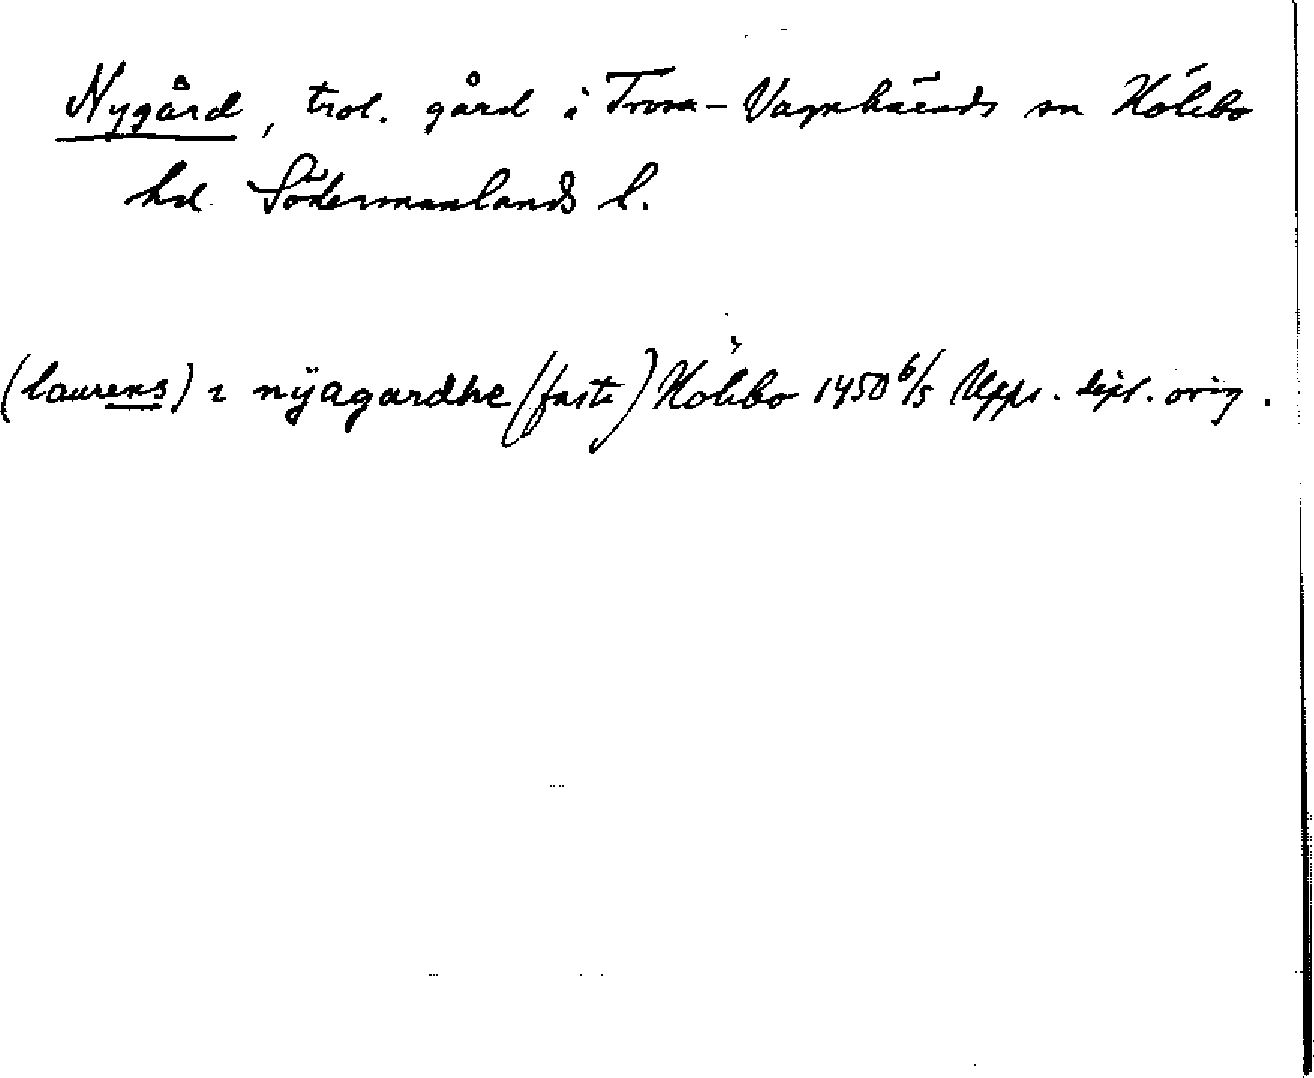 Nygård, trol. gård i Trosa-Vagnhärads sn Hölebo
hd. Södermanlands l.
(laurens) i nÿagardhe (faste) Hölebo 1450 6/5 Upps. dipl. orig.